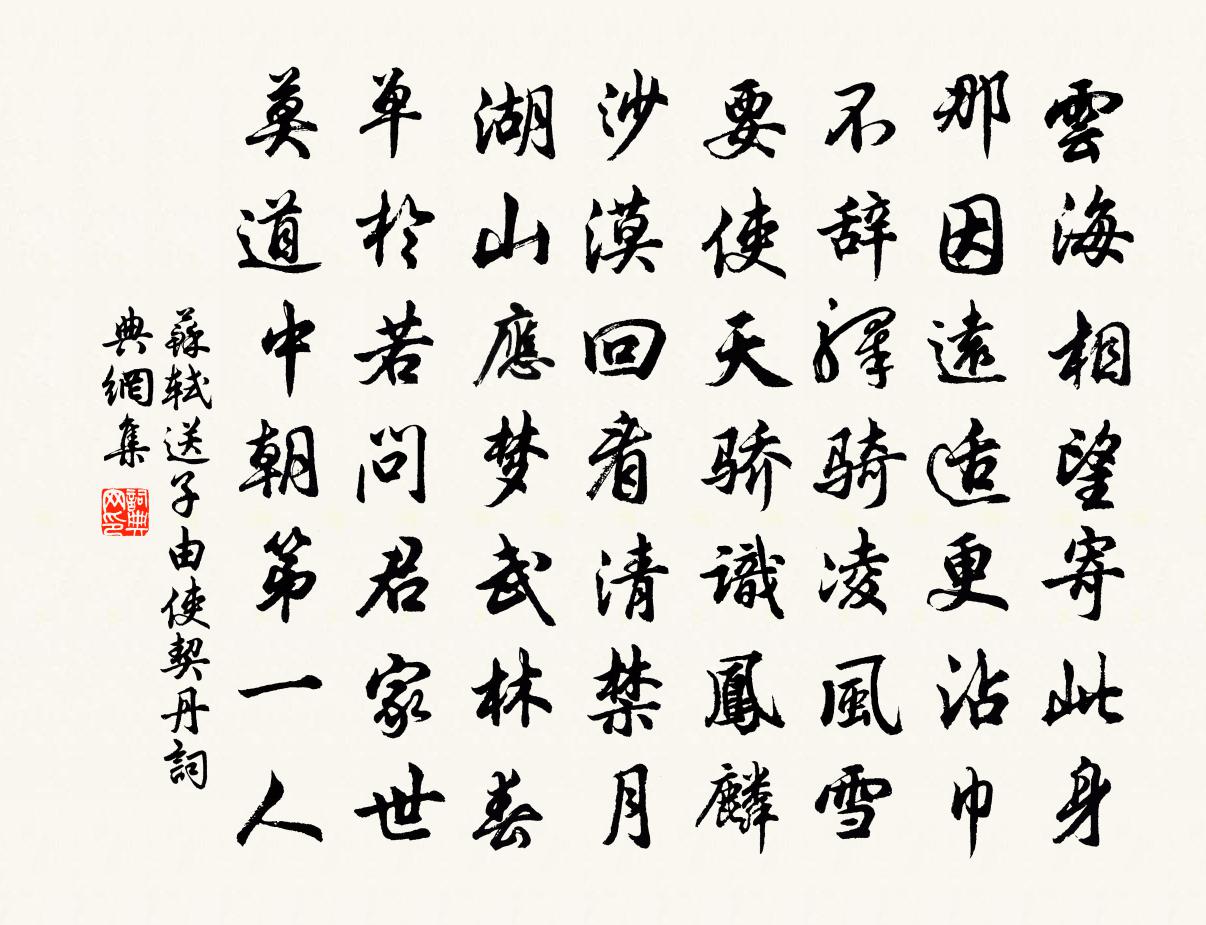 雲海相望寄此身
那因遠适更沾巾
不辞驛骑凌風雪
要使天骄識鳳麟
沙漠回看清禁月
湖山應梦武林春
单於若问君家世
莫道中朝第一人
蘇轼送子由使契丹詞
典網集
詞典
网印